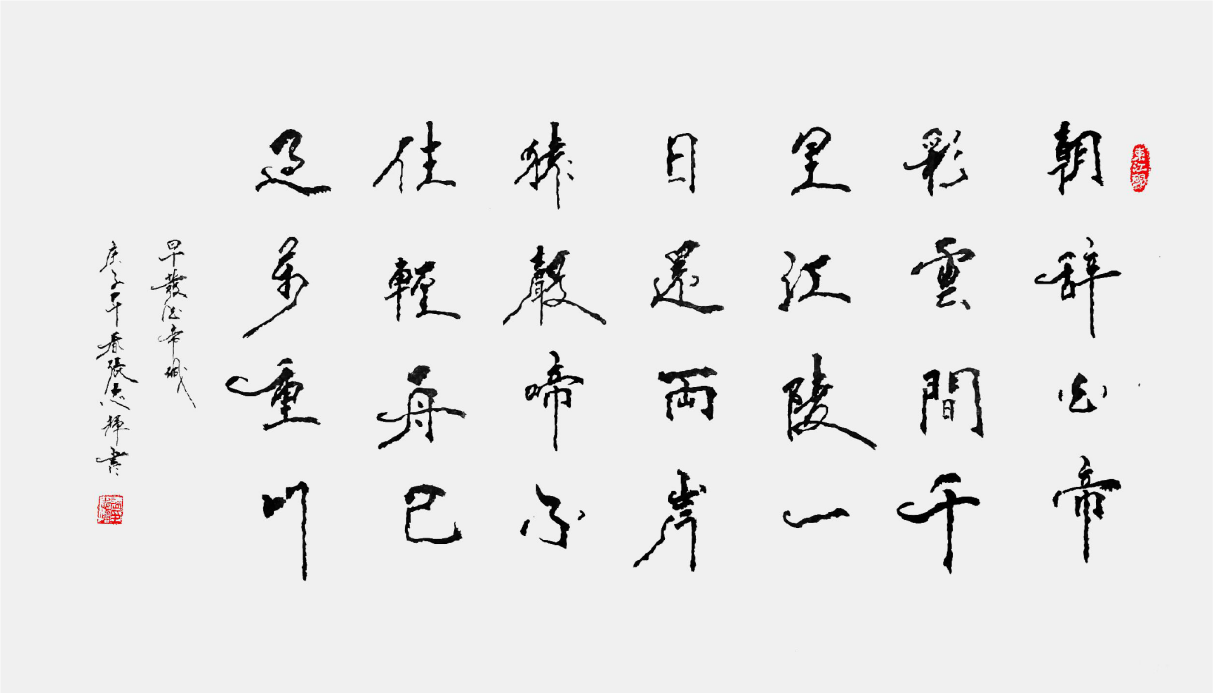 朝辞白帝
彩雲間千
里江陵一
日還両岸
猿聲啼不
住輕舟已
過萬重川
早發白帝城
庚子年春張志輝書